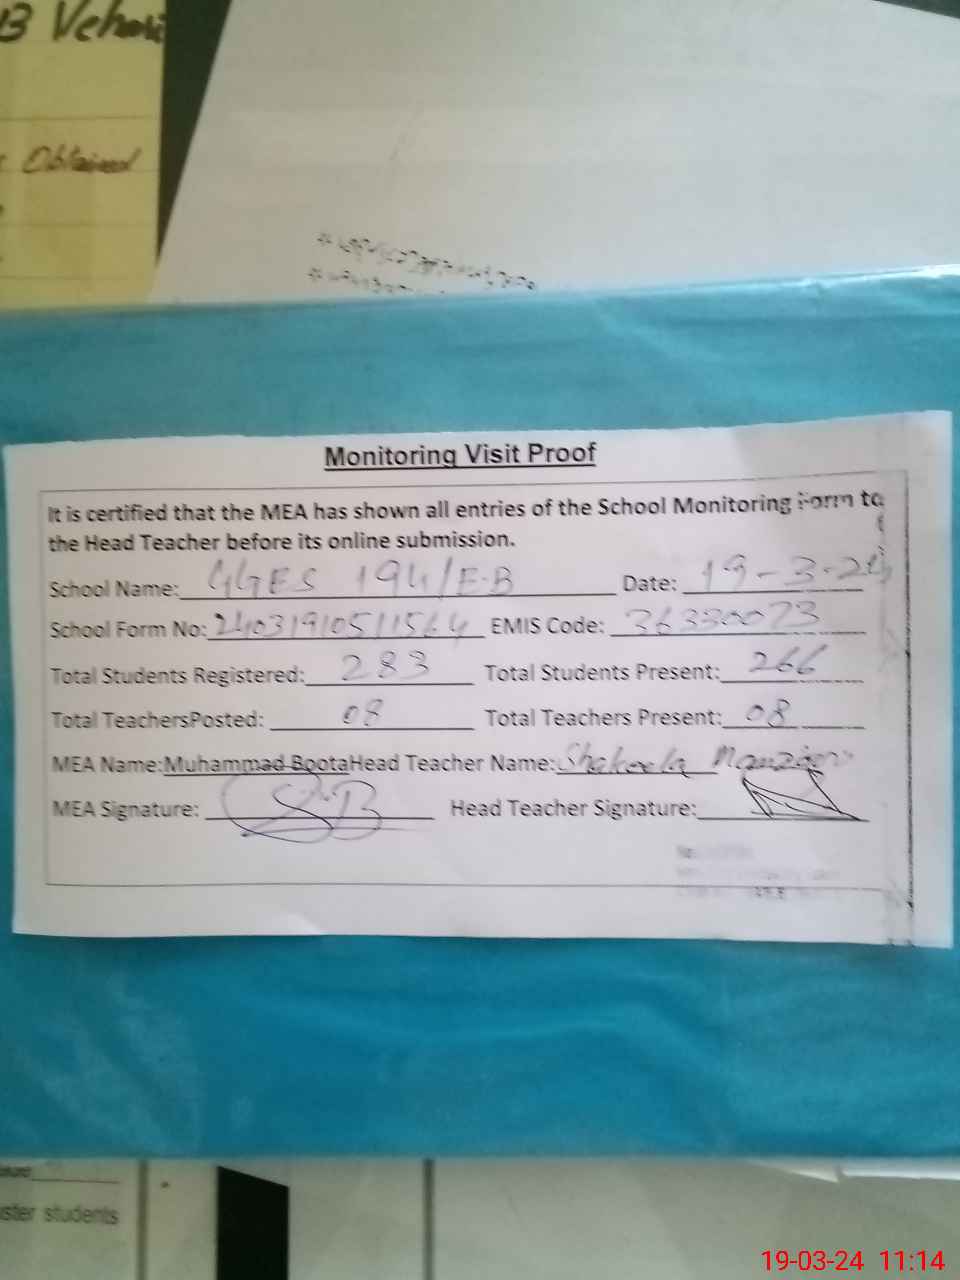 B Vehari
Obtained
Monitoring Visit Proof
It is certified that the MEA has shown all entries of the School Monitoring Form to
the Head Teacher before its online submission.
School Name: GGES 194/E-B Date: 19-3-24
School Form No: 24031910511564 EMIS Code: 36330073
Total Students Registered: 283 Total Students Present: 266
Total TeachersPosted: 08 Total Teachers Present: 08
MEA Name:Muhammad BootaHead Teacher Name: Shakeela
MEA Signature: Head Teacher Signature:
students
19-03-24 11:14